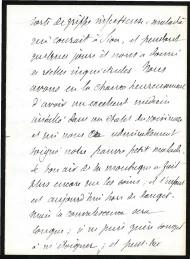 sorte de grippe infectieuse, maladie
qui courait à Lyon, et pendant
quelques jours il nous a donné
de réelles inquiétudes. Nous
avons eu la chance heureusement
d'avoir un excellent médecin
installé dans un chalet du voisinage
et qui nous a admirablement
soigné notre pauvre petit malade.
Le bon air de la montagne a fait
plus encore que les soins, et l'enfant
est aujourd'hui hors de danger.
mais la convalescence sera
longue; je ne puis guère songer
à m'éloigner; et peut-être